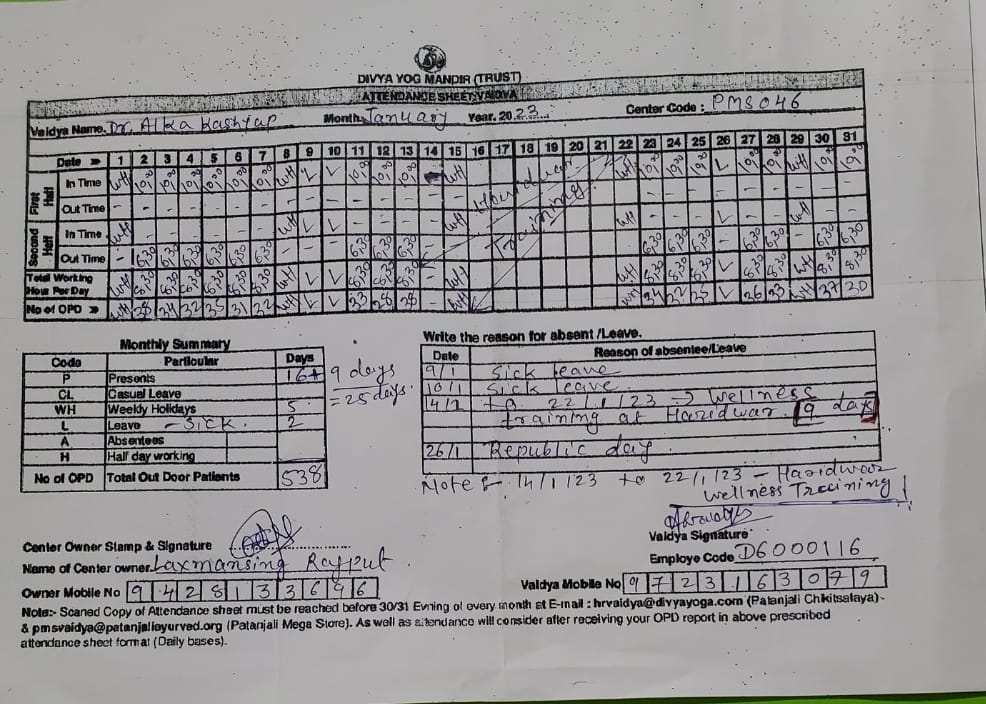 DIVYA YOG MANDIR (TRUST)
ATTENDANCE SHEET: VAIDYA
Vaidya Name. Dr. Alka Kashyap Month. January Year. 2023 Center Code : PMS046
Date » 1 2 3 4 5 6 7 8 9 10 11 12 13 14 15 16 17 18 19 20 21 22 23 24 25 26 27 28 29 30 31
First Half In Time WH 10,00 10,00 10,00 10,00 10,00 10,00 WH L L 10,00 10,00 10,00 WH Haridwar WH 10,00 10,00 10,00 L 10,00 10,00 WH 10,00 10,00
Out Time - - - - - - - - - -
Training
Second Half In Time WH - - - - - - WH L L - - - - WH WH - - - L - - WH - -
Out Time - 6,30 6,30 6,30 6,30 6,30 6,30 L L 6,30 6,30 6,30 6,30 6,30 6,30 L 6,30 6,30 6,30 6,30
Total Working Hour Per Day WH 8,30 8,30 8,30 8,30 8,30 8,30 WH L L 8,30 8,30 8,30 - WH WH 8,30 8,30 8,30 L 8,30 8,30 WH 8,30 8,30
No of OPD » WH 28 32 35 31 22 WH L L 33 28 28 - WH WH 22 35 L 36 33 WH 37 20
Monthly Summary
Code Particular Days
P Presents 16+ 9 days
= 25 days.
CL Casual Leave
WH Weekly Holidays 5
L Leave - SICK. 2
A Absentees
H Half day working
No of OPD Total Out Door Patients 538
Write the reason for absent /Leave.
Date Reason of absentee/Leave
9/1 Sick leave
10/1 Sick leave.
14/1 to 22/1/23 → wellness
training at Haridwar. 9 days
26/1 Republic day
Note :- 14/1/23 to 22/1/23 - Haridwar
wellness Training!
Center Owner Stamp & Signature
Vaidya Signature
Name of Center owner. Laxmansing Rajput
Employe Code D6000116
Owner Mobile No 9428133696
Vaidya Mobile No 9723163079
Note:- Scaned Copy of Attendance sheet must be reached before 30/31 Evning of every month at E-mail : hrvaidya@divyayoga.com (Patanjali Chikitsalaya)-
& pmsvaidya@patanjaliayurved.org (Patanjali Mega Store). As well as attendance will consider after receiving your OPD report in above prescribed
attendance sheet format (Daily bases).